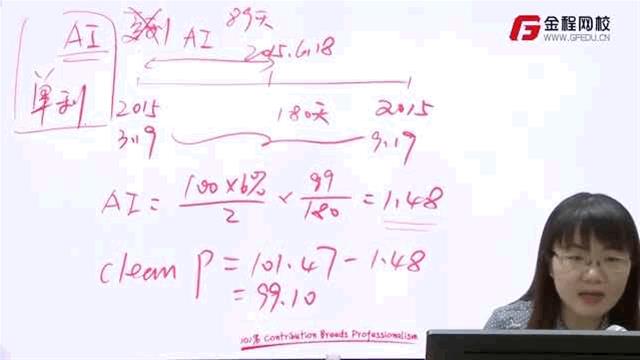 金程网校
WWW.GFEDU.CN
AI
单利
AI 89天
2015.6.18
2015
180天
2015
3.19
3.19
AI = 100×6% / 2 × 89 / 180 = 1.48
clean P = 101.47 - 1.48
= 99.10
101% Contribution Breeds Professionalism